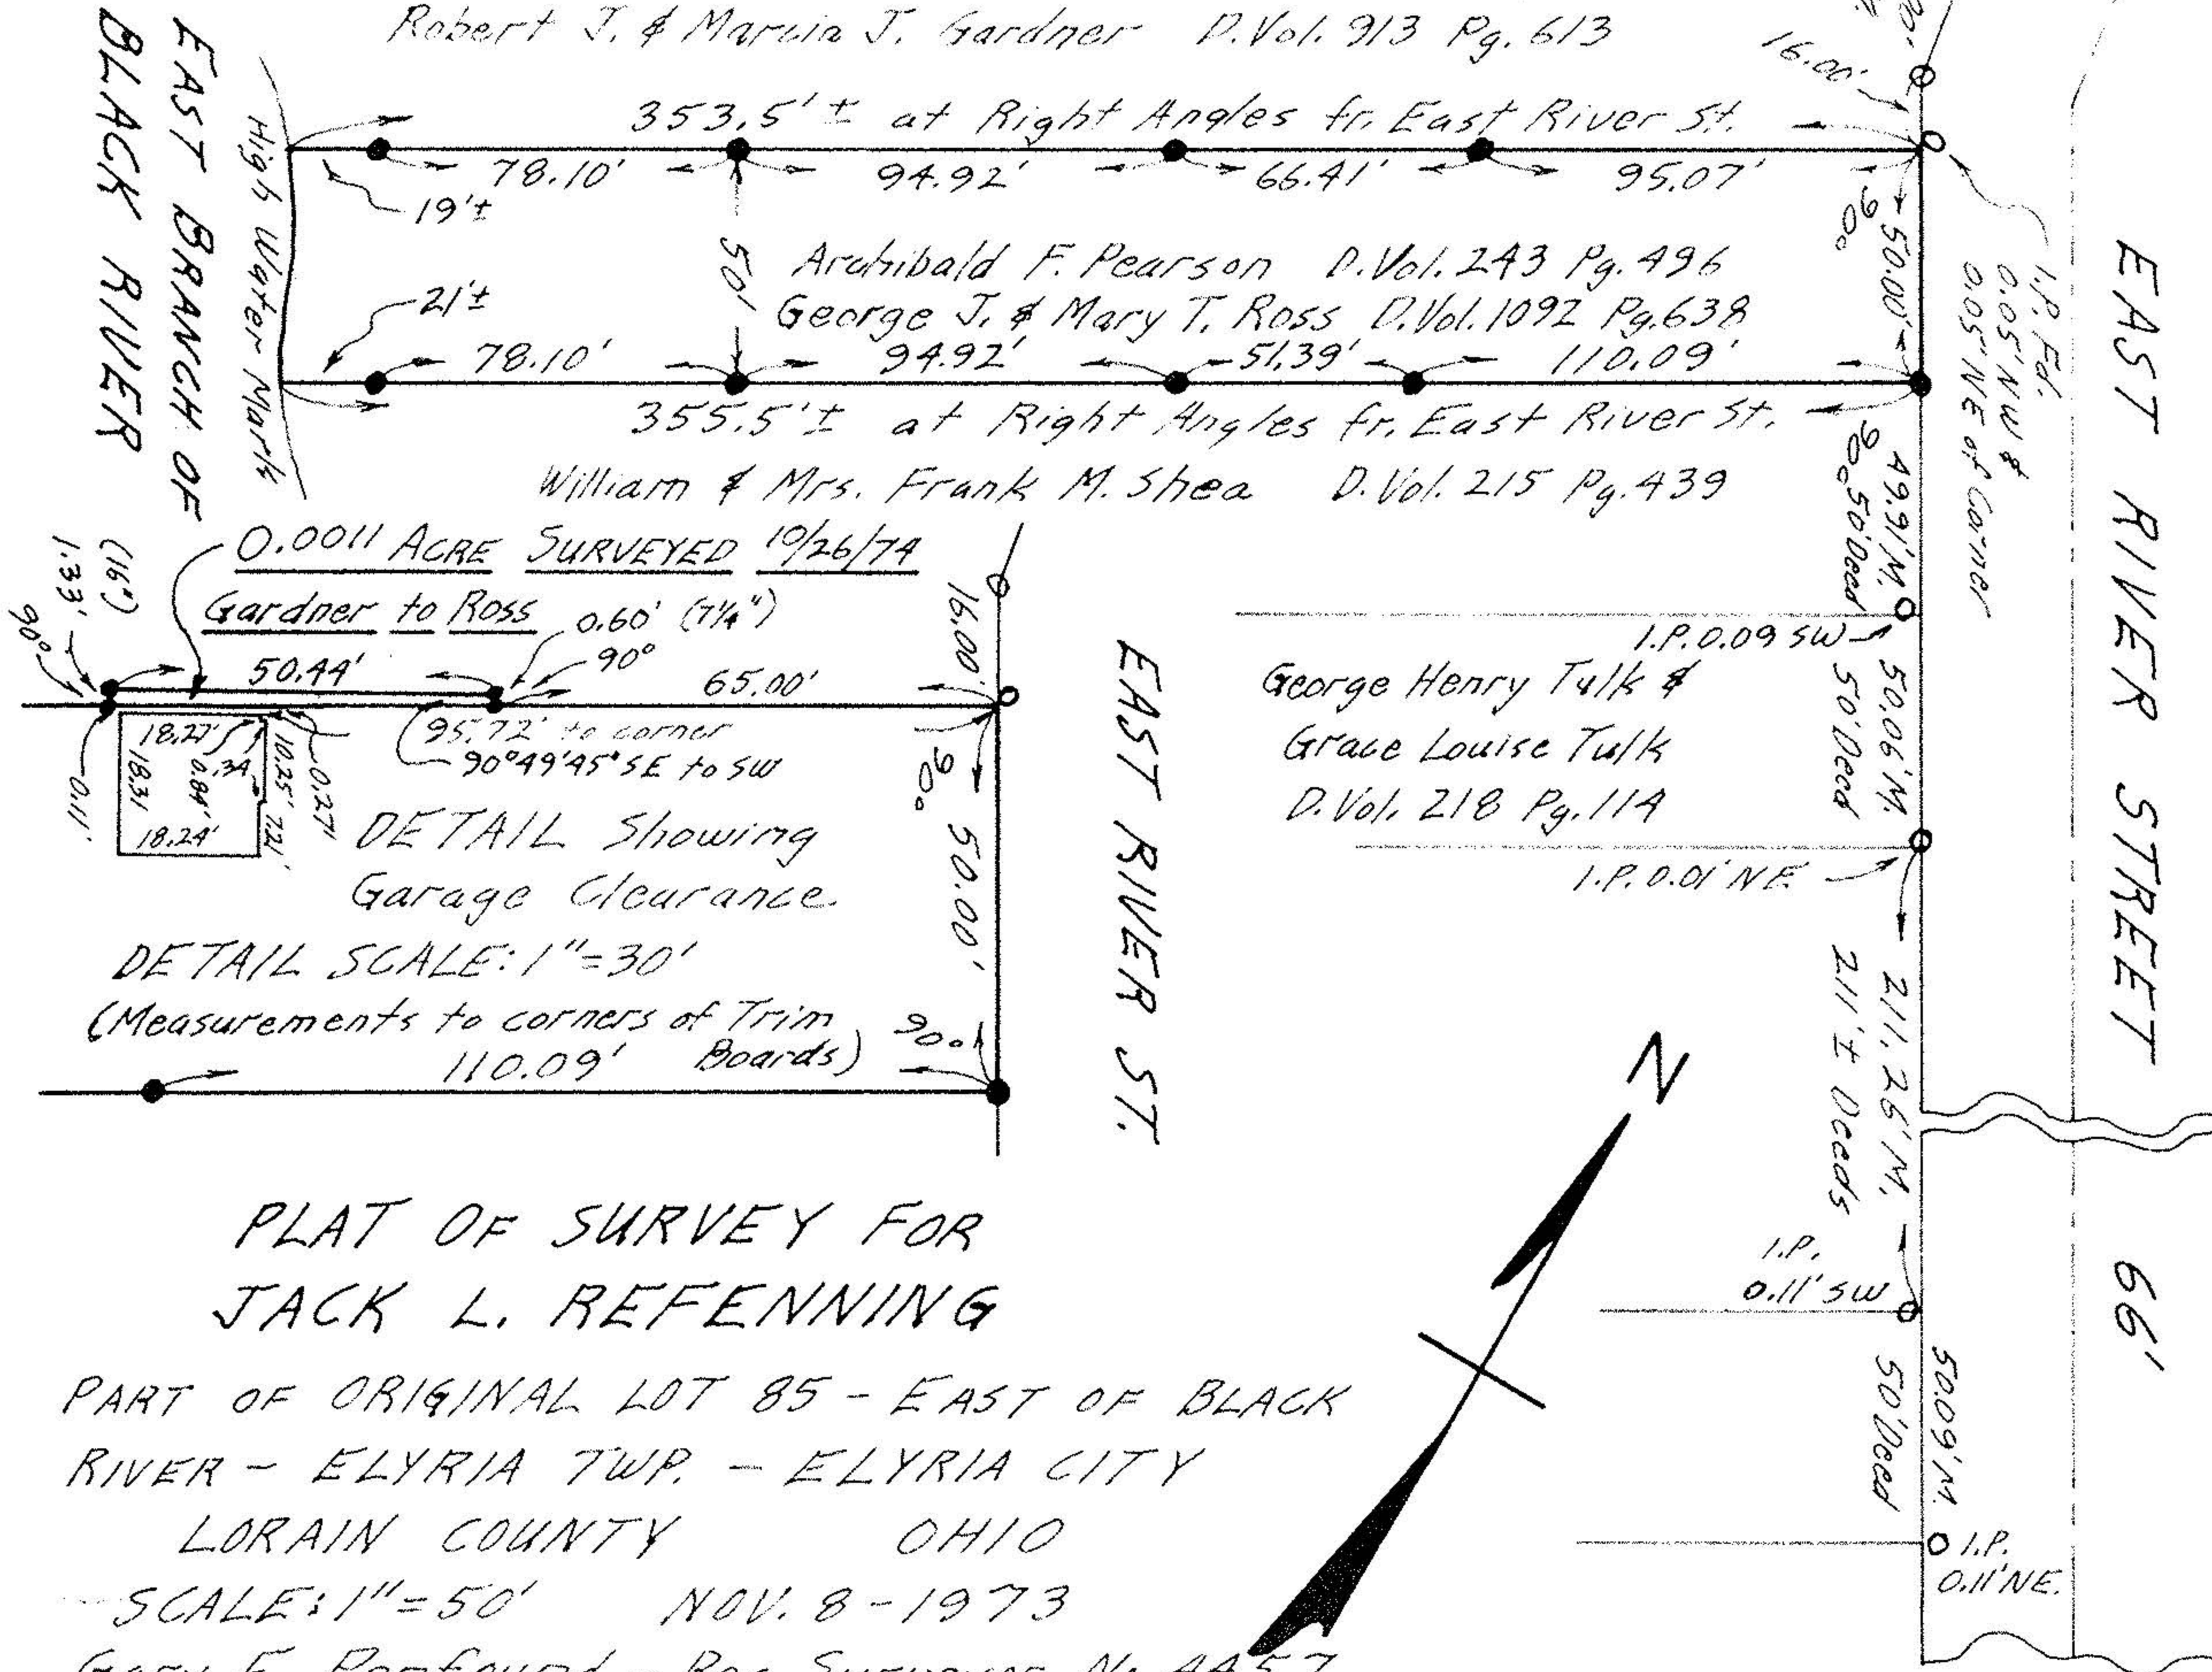 Robert J. & Marcia J. Gardner D.Vol. 913 Pg. 613
16.00'
353.5'± at Right Angles fr. East River St.
78.10' 94.92' 66.41' 95.07'
19'±
50'
90°
50.00'
Archibald F. Pearson D.Vol. 243 Pg. 496
George J. & Mary T. Ross D.Vol. 1092 Pg. 638
21'±
78.10' 94.92' 51.39' 110.09'
355.5'± at Right Angles fr. East River St.
William & Mrs. Frank M. Shea D.Vol. 215 Pg. 439
EAST BRANCH OF
BLACK RIVER
High Water Mark
I.P. Fd.
0.05' NW &
0.05' NE of Corner
EAST RIVER STREET 66'
90°
49.91' M.
50' Deed
I.P. 0.09 SW
50.06' M.
50' Deed
George Henry Tulk &
Grace Louise Tulk
D.Vol. 218 Pg. 114
I.P. 0.01' NE
211.26' M.
211'± Deeds
I.P.
0.11' SW
50.09' M.
50' Deed
I.P.
0.11' NE.
0.0011 ACRE SURVEYED 10/26/74
Gardner to Ross
0.60' (7¼")
90°
(16")
1.33'
90°
50.44'
65.00'
16.00'
95.72' to corner
90°49'45" SE to SW
18.27'
18.31
0.84'
.34
10.25'
7.21'
0.27'
18.24'
0.11'
90°
50.00'
EAST RIVER ST.
DETAIL Showing
Garage Clearance.
DETAIL SCALE: 1"=30'
(Measurements to corners of Trim
Boards)
90°
110.09'
N
PLAT OF SURVEY FOR
JACK L. REFENNING
PART OF ORIGINAL LOT 85 - EAST OF BLACK
RIVER - ELYRIA TWP. - ELYRIA CITY
LORAIN COUNTY OHIO
SCALE: 1"=50' NOV. 8-1973